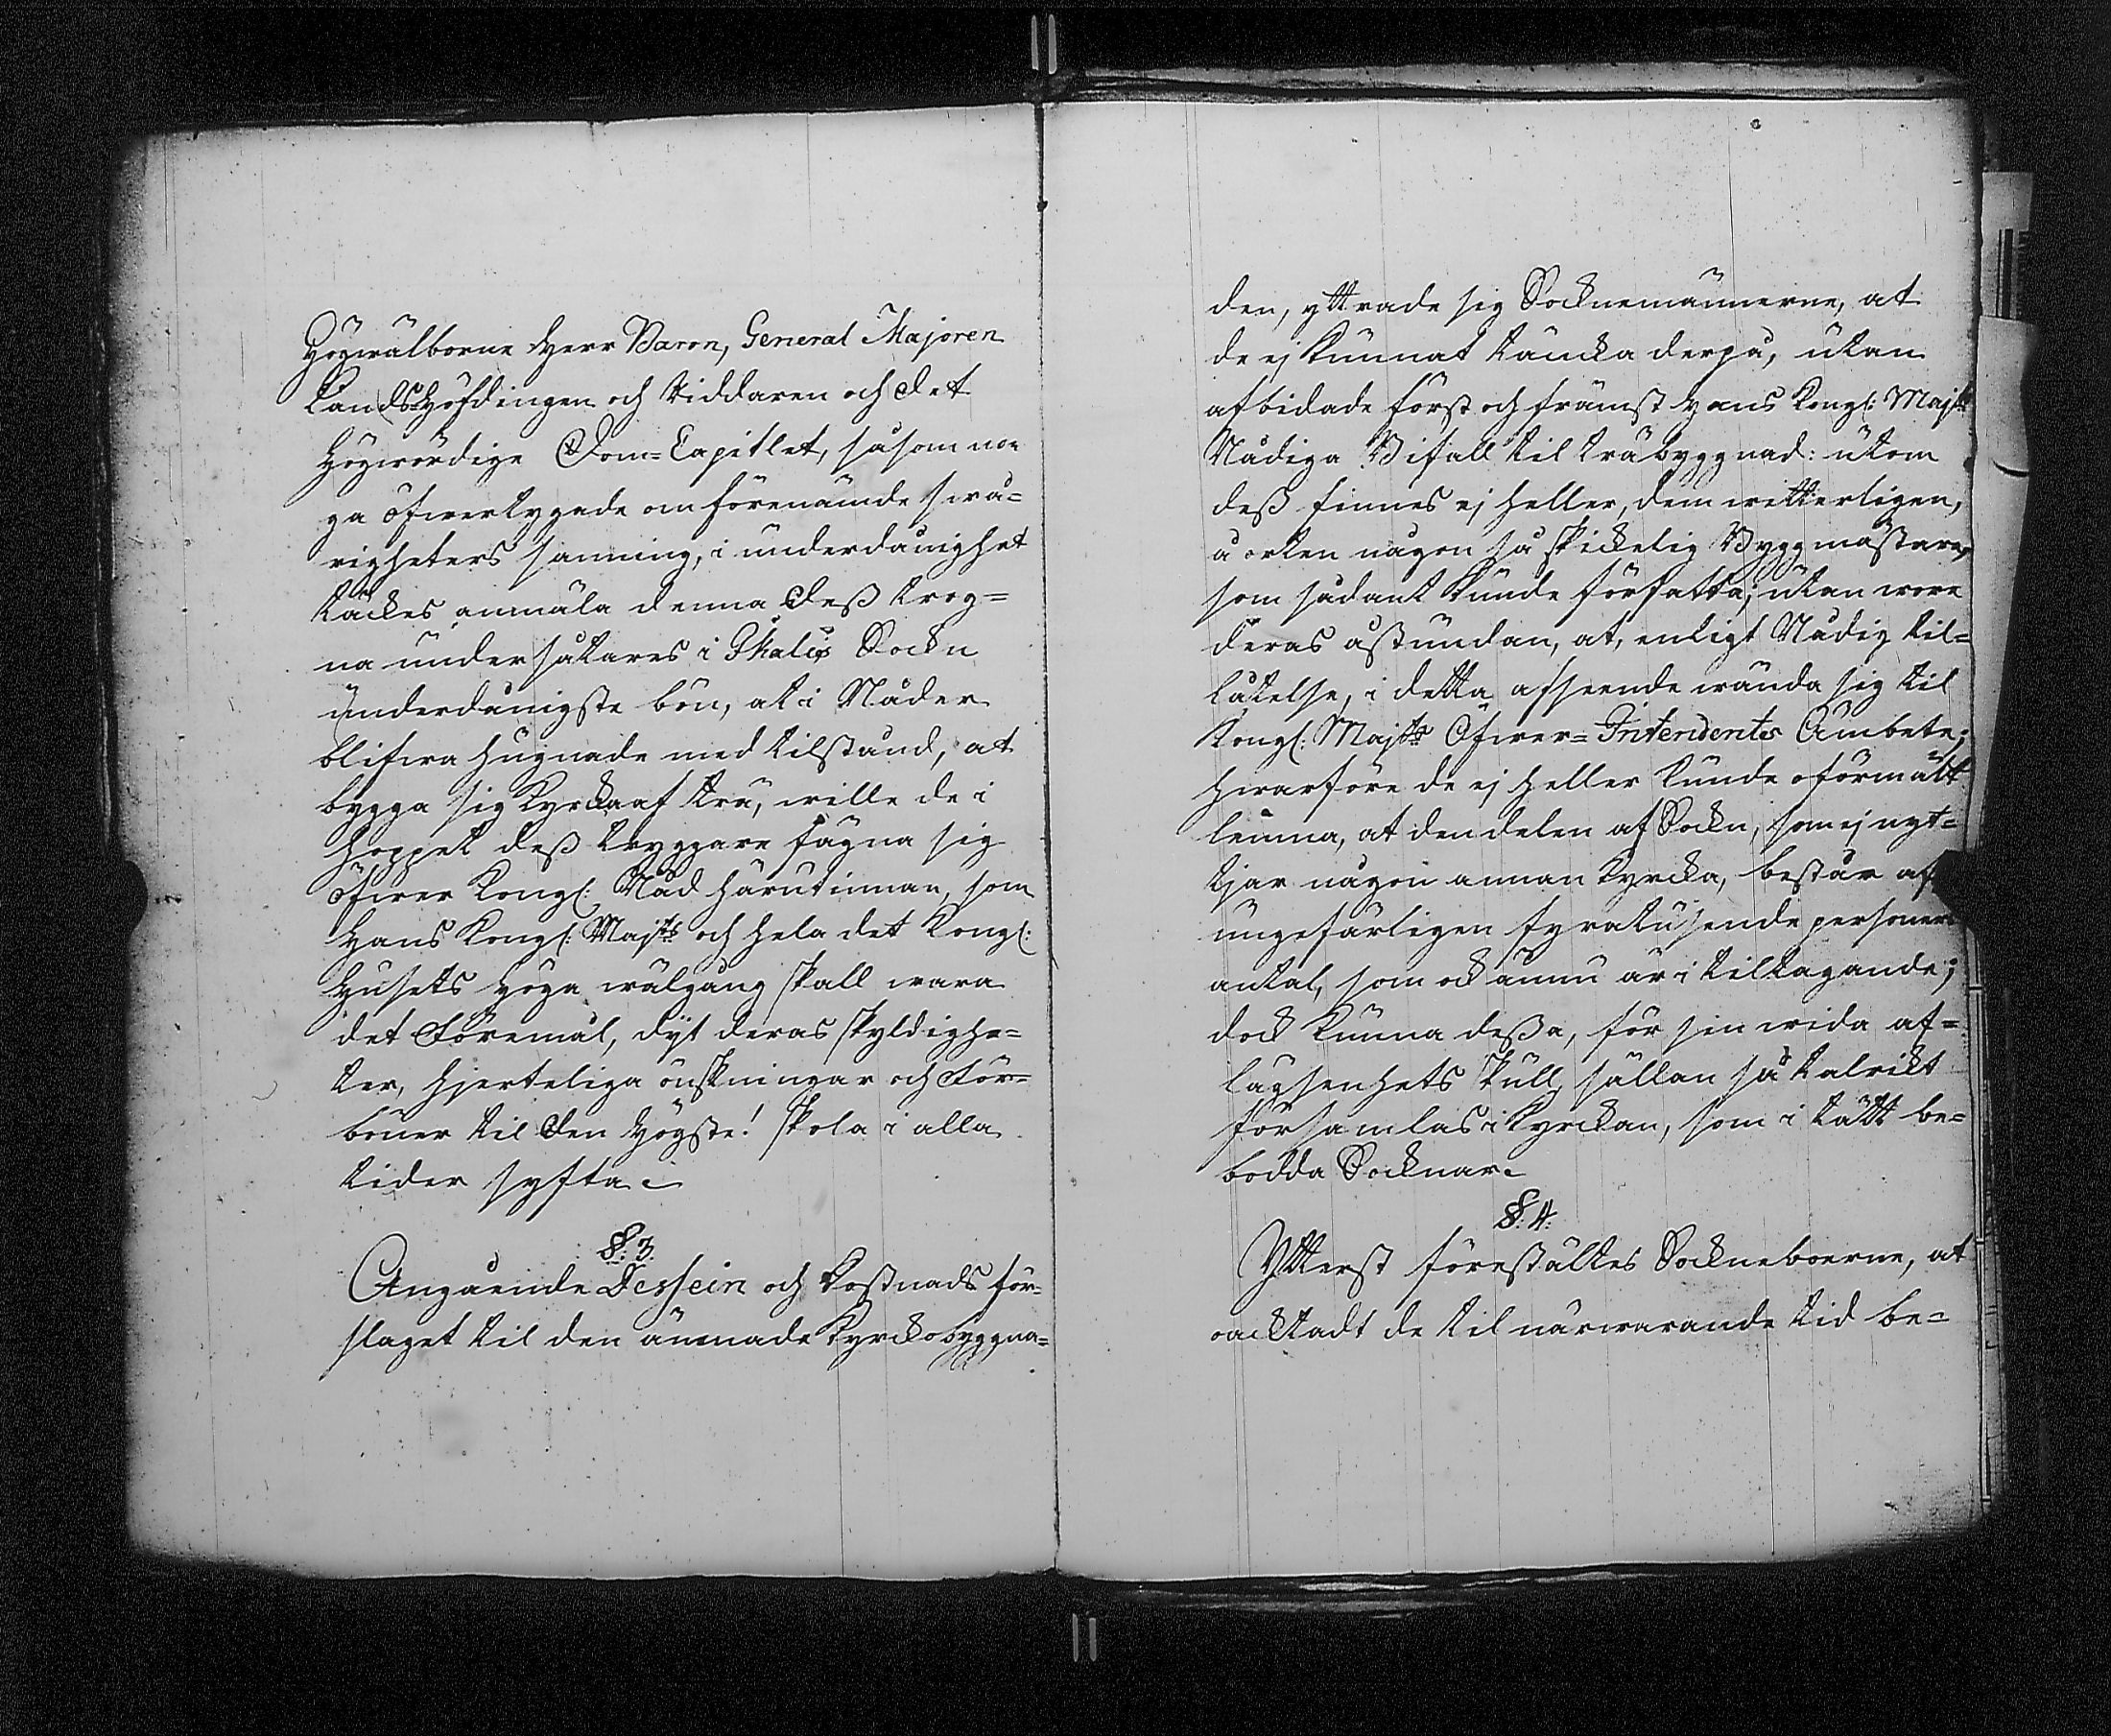 Högwälborne Herr Baron, General Majoren
Landshöfdingen och Riddaren och det
Högwördige Dom=Capitlet, såsom no
ga öfwertygade om förenämde swå=
righeters sanning, i underdånighet
täckes anmäla denna Deß trog=
na undersåtares i Ikalis Sockn
underdånigste bön, at i Nåder
blifwa hugnade med tilstånd, at
bygga sig Kyrcka af trä, wille de i
hoppet deß tryggare fägna sig
öfwer Kongl: Nåd härutinnan, som
Hans Kongl: Majts och hela det Kongl:
Husets höga wälgång skall wara
det Föremål, dyt deras skyldighe=
ter, hjerteliga önskningar och För=
böner til Den Högste! skola i alla
tider syfta.
§: 3.
Angående Dessein och Kostnads för=
slaget til den ämnade Kyrckobyggna=
den, yttrade sig Socknemännerne, at
de ej kunnat täncka derpå, utan
afbidade först och främst Hans Kongl: Majts
Nådiga Bifall til träbyggnad: utom
deß finnes ej heller, dem witterligen,
å orten någon så skickelig Byggmästare,
som sådant kunde författa; utan wore
deras åstundan, at, enligt Nådig til=
låtelse, i detta afseende wända sig til
Kongl: Majts Öfwer=Intendents Ämbete;
hwarföre de ej heller kunde oförmält
lemna, at den delen af Sockn, som ej nyt=
tjar någon annan Kyrcka, består af
ungefärligen fyratusende personers
antal, som ock ännu är i tiltagande;
dock kunna deßa, för sin wida af=
lägsenhets skull, sällan så talrikt
församlas i Kyrckan, som i tätt be=
bodda Socknar.
§: 4.
Ytterst föreställtes Sockneboerne, at
oacktadt de til närwarande tid be=